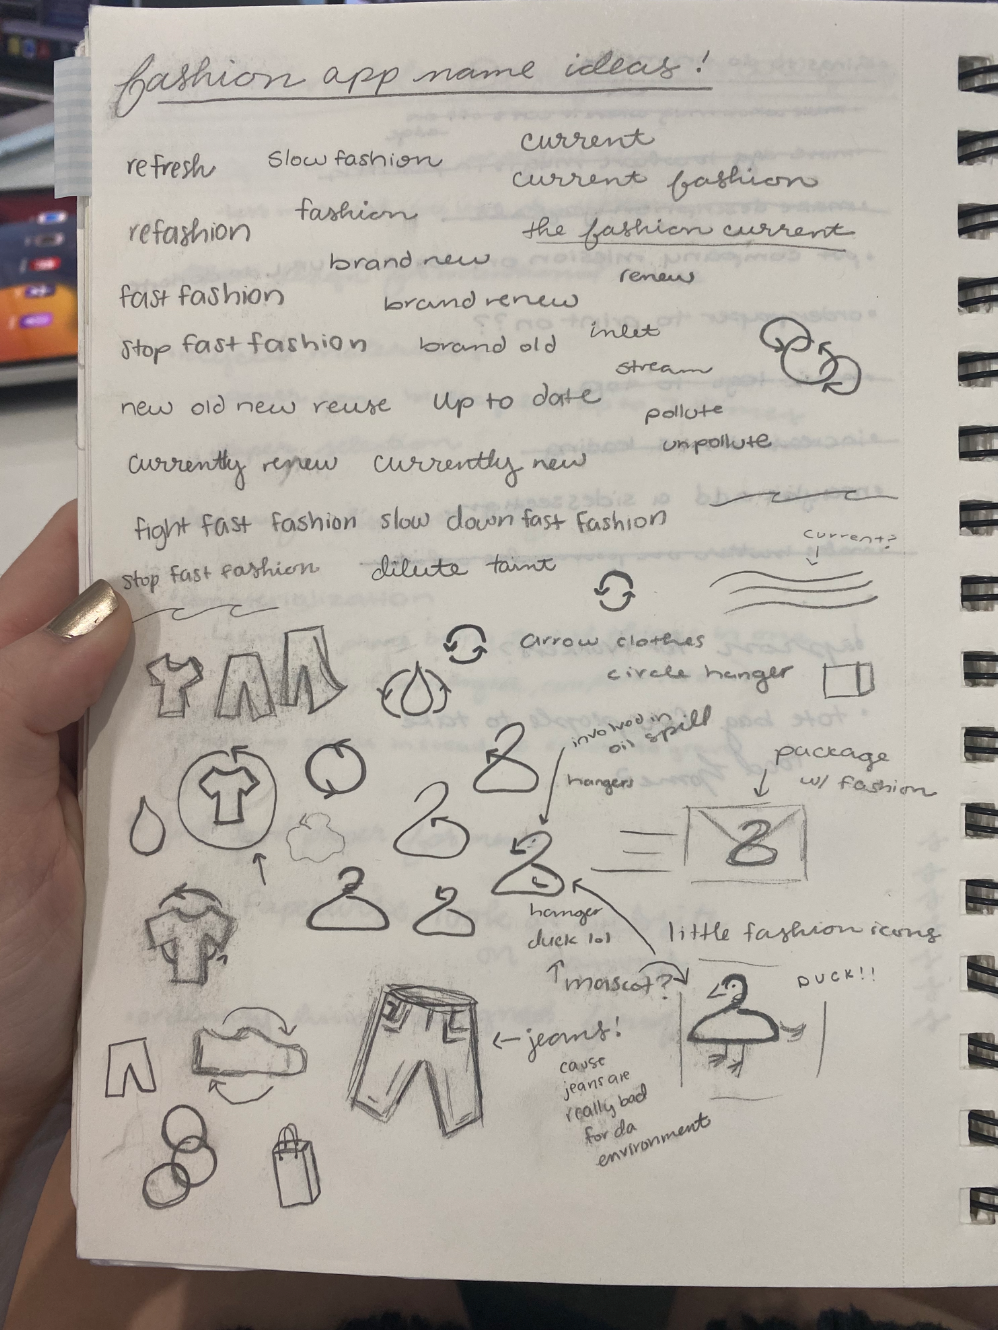 fashion app name ideas!
refresh
slow fashion
current
current fashion
fashion
refashion
the fashion current
brand new
renew
fast fashion
brand renew
inlet
stop fast fashion
brand old
stream
new old new reuse
up to date
pollute
unpollute
currently renew
currently new
fight fast fashion
slow down fast fashion
current?
stop fast fashion
dilute taint
arrow clothes
circle hanger
involved in
oil spill
hangers
package
w/ fashion
hanger
duck lol
little fashion icons
mascot?
DUCK!!
jeans!
cause
jeans are
really bad
for da
environment